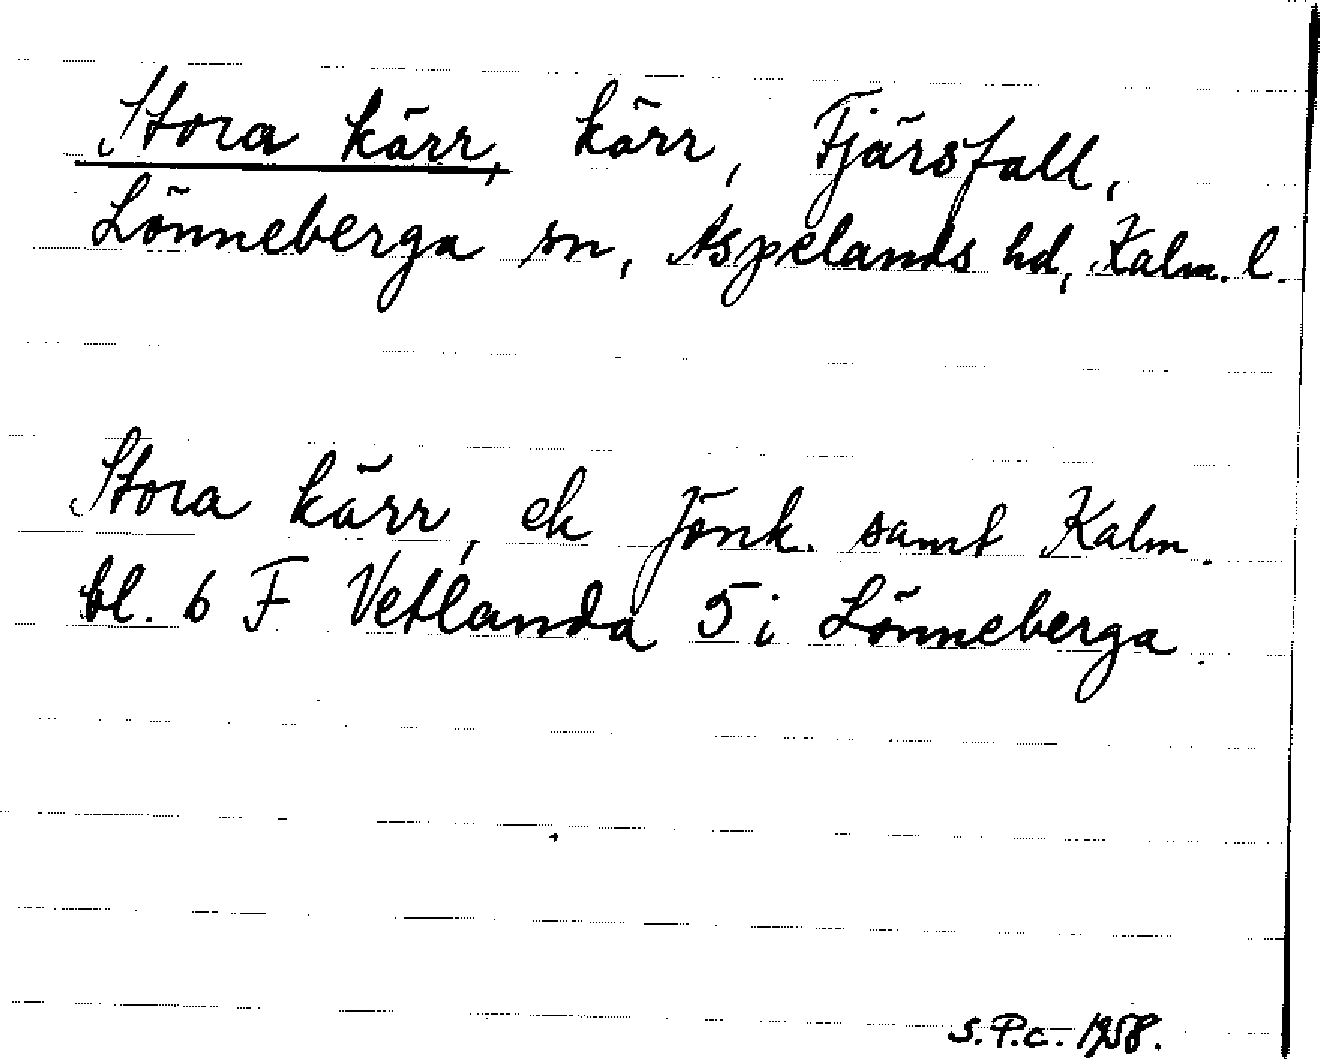 Stora kärr, kärr, Fjärsfall,
Lönneberga sn, Aspelands hd, Kalm. l.
Stora kärr, ek Jönk. samt Kalm.
bl. 6 F Vetlanda 5 i Lönneberga.
S.P.c. 1958.